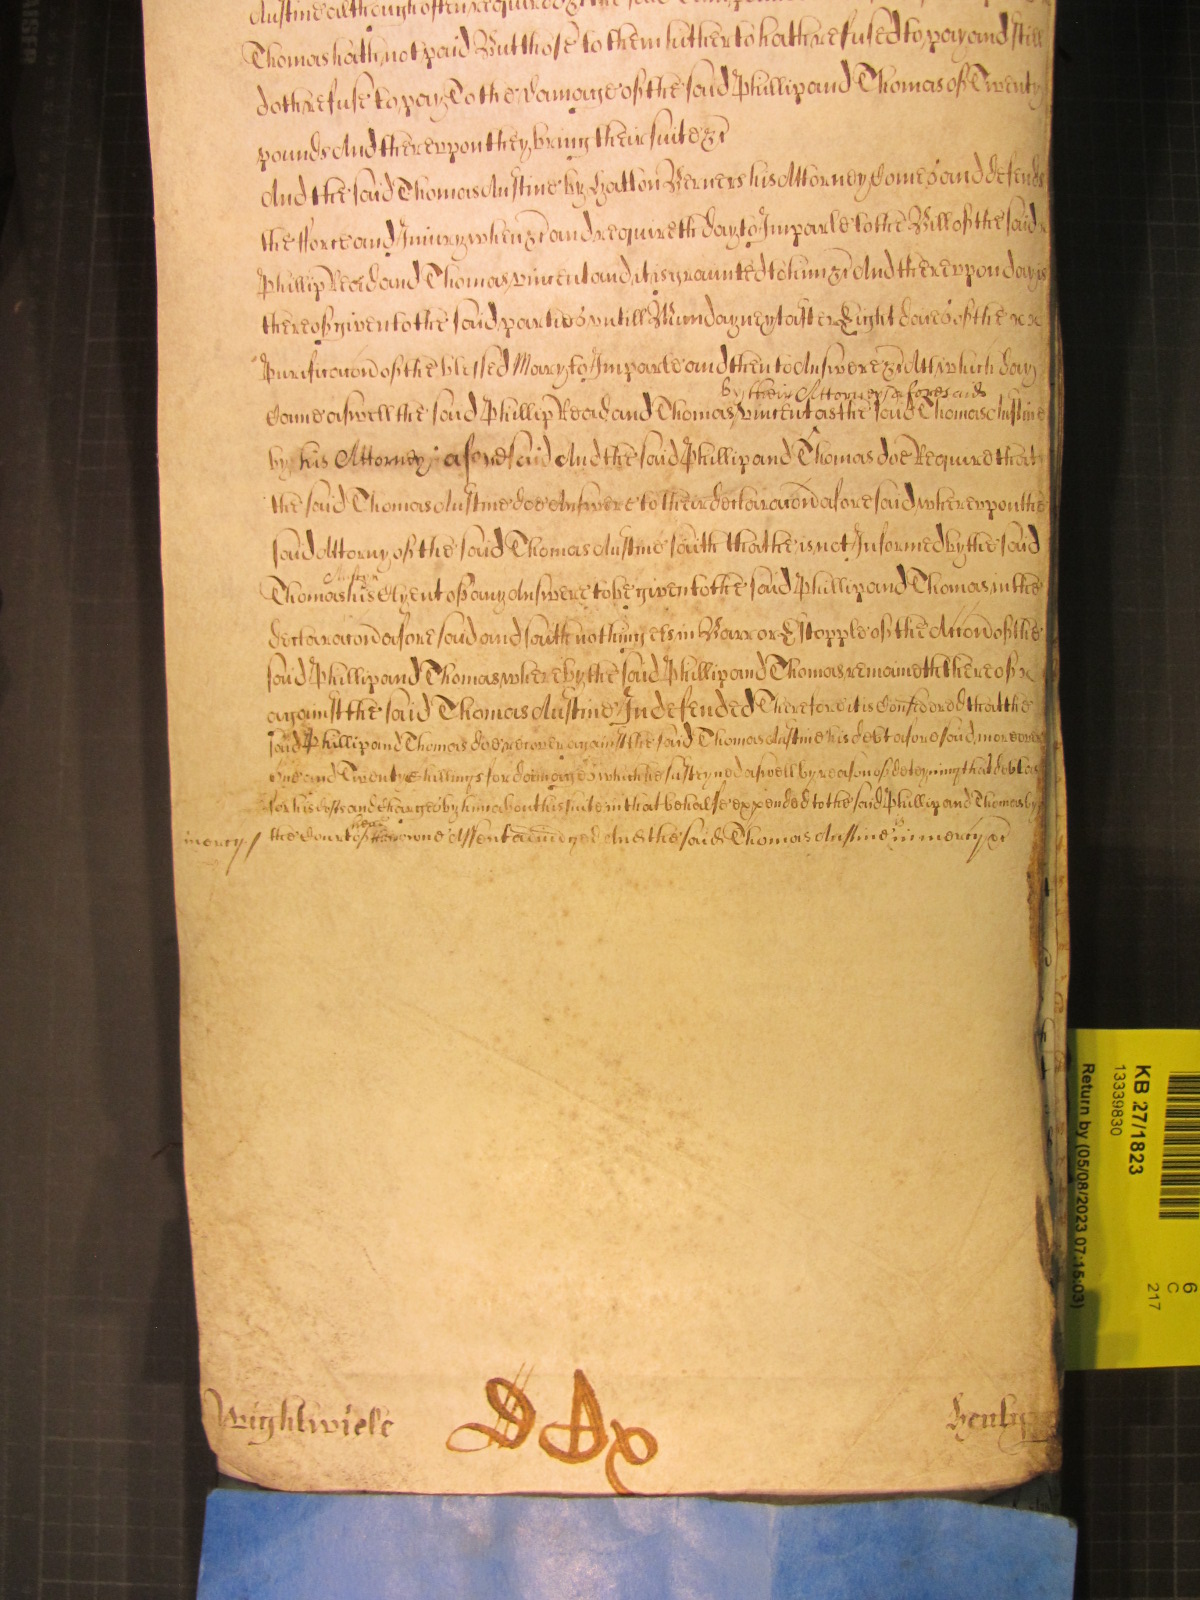 Austine although often required &c the said
Thomas hath not paid But those to them hitherto hath refused to pay and still
doth refuse to pay To the damage of the said Phillip and Thomas of Twenty
pounds And therevpon they bring their suite &c
And the said Thomas Austine by Hatton Berners his Attorney Comes and defends
the fforce and Iniury when &c and requireth day to Imparle to the Bill of the said
Phillip Read and Thomas vincent and it is graunted to him &c And therevpon day is
thereof given to the said parties vntill Munday next after Eight daies of the
Purificacon of the blessed Mary to Imparle and then to Answere &c Att which day
by their Attorney aforesaid
Came aswell the said Phillip Read and Thomas vincent as the said Thomas Austine
by his Attorney aforesaid And the said Phillip and Thomas doe Require that
the said Thomas Austine doe Answere to their declaracon aforesaid wherevpon the
said Attorny of the said Thomas Austine saith that he is not Informed by the said
Austin
Thomas his Clyent of any Answere to be given to the said Phillip and Thomas in the
declaracon aforesaid and saith nothing els in Barr or Estopple of the Accon of the
said Phillip and Thomas whereby the said Phillip and Thomas remaineth thereof
against the said Thomas Austine Indefended Therefore it is Considered that the
said Phillip and Thomas doe recover against the said Thomas Austine his debt aforesaid moreover
one and Twenty shillings for damages which he susteyned aswell by reason of deteyning that debt as
for his costs and charges by him about his suite in that behalfe expended to the said Phillip and Thomas by
mercy / the Court of owne Assent adiudged And the said Thomas Austine in mercy &c
Wightwick
Henley
KB 27/1823
13339830
Return by (05/08/2023 07:15:03)
6
C
217